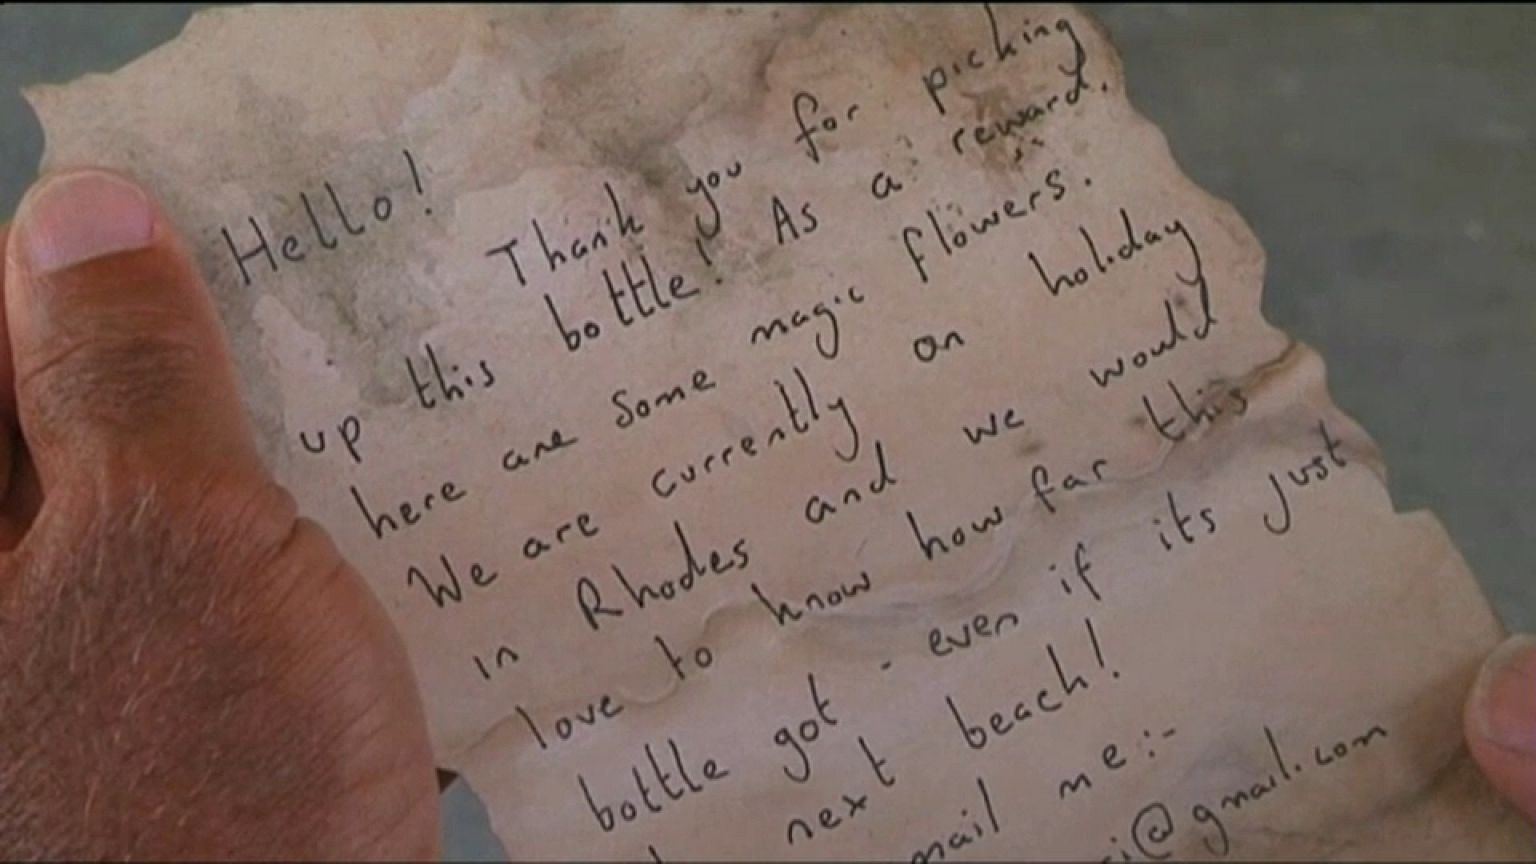 Hello!
Thank you for picking
up this bottle! As a reward.
here are some magic flowers.
We are currently on holiday
in Rhodes and we would
love to know how far this
bottle got - even if its just
next beach!
me:-
@gmail.com